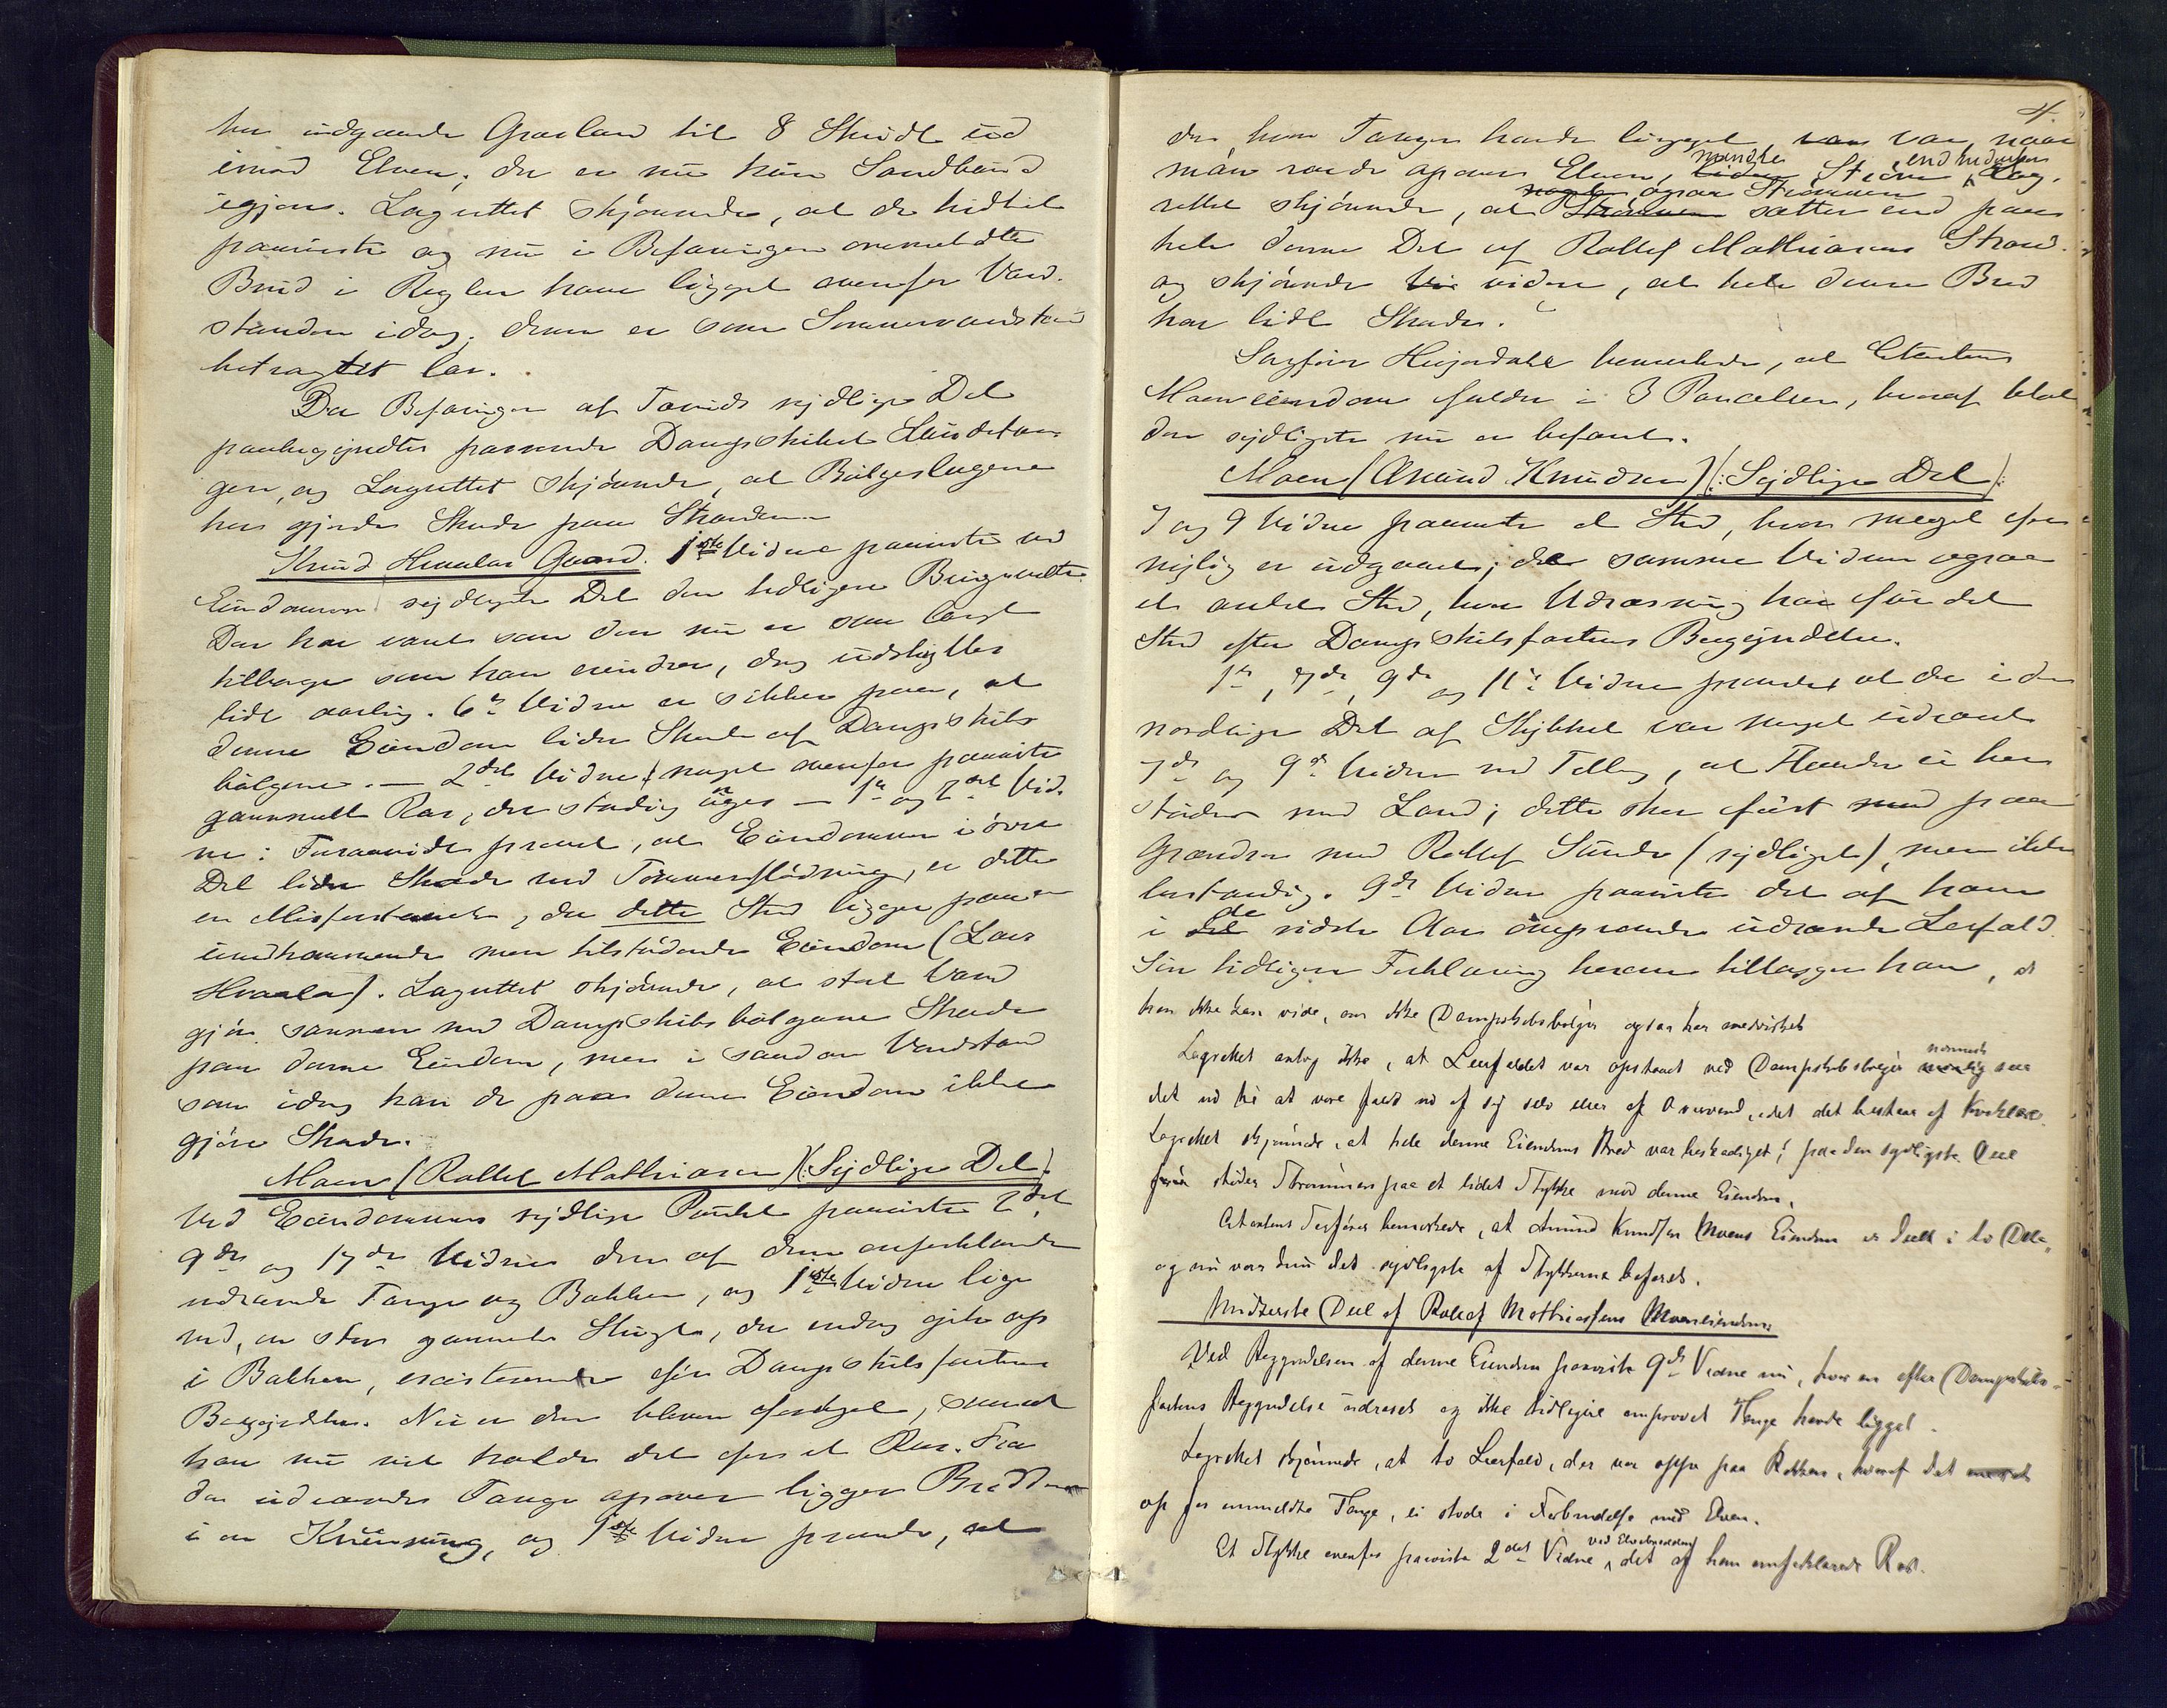 har udgaaende Græsland til 8 Skridt ud
imod Elven; der er nu kun Sandbund
igjen. Lagrettet skjønnede, at de hidtil
paaviste og nu i Befaringen anmeldte
Brud i Reglen have ligget ovenfor Vand-
standen idag; denne er som Sommervandstand
betragtet lav.
Da Befaringen af sydlige Del
paabegyndtes passerede Dampskibet Lundetan-
gen, og Lagrettet skjønnede, at Bølgeslagene
her gjorde Skade paa Stranden.
Knud Hvaalas Gaard. 1ste Vidne paaviste ved
Eiendommens sydligste Del den tidligere
Den har været som den nu er saa langt
tilbage som han mindes, dog udskylles
lidt aarlig. 6te Vidne er sikker paa, at
denne Eiendom lider Skade af Dampskibs
bølgerne. — 2det Vidne noget ovenfor paaviste
gammelt Ras, der stadig øges — 1ste og 2det Vid-
ne: Foraavidt provet, at Eiendommen i øvre
Del lider Skade ved Tømmerflødning, er dette
en Misforstaaelse, da dette Sted ligger paa
uvedkommende men tilstødende Eiendom (Lars
Hvaala). Lagrettet skjønnede, at stort Vand
gjør sammen med Dampskibsbølgerne Skade
paa denne Eiendom, men i saadan Vandstand
som idag kan de paa denne Eiendom ikke
gjøre Skade.
Moen (Rollef Mathiasen) (: Sydlige Del :)
Ved Eiendommens sydlige Punkt paaviste 2det,
9de og 17de Vidne den af dem omforklarede
udrasede Tange og Bakken, og 1ste Vidne lige
ved, en stor gammel Skugte, der endog gik op
i Bakken, existerende før Dampskibsfartens
Begyndelse. Nu er den bleven forøget, saa at
han nu vil kalde det for et Ras. Fra
den udrasede Tange opover ligger Bredden
i en Krumning, og 1ste Vidne provede, at
4.
der, hvor Tangen havde ligget var naar
man roede opover Elven, mindre Strøm end nedenfor. Lag-
rettet skjønnede, at ogsaa Strømmen sætter ind paa
hele denne Del af Rollef Mathiasens Strand
og skjønnede videre, at hele denne Bred
har lidt Skade.
Sagfører Heijerdahl bemærkede, at Citantens
Moen eiendom falder i 3 Parceller, hvoraf blot
den sydligste nu er befaret.
Moen (Amund Knudsen) (: Sydlige Del :)
7 og 9 Vidne paaviste et Sted, hvor meget før
nylig er udgaaet; de samme Vidner ogsaa
et andet Sted, hvor Udrasning har fundet
Sted efter Dampskibsfartens Begyndelse.
1ste, 7de, 9de og 11te Vidne provede at der i den
nordlige Del af Stykket var meget udraset
7de og 9de Vidne med Tillæg, at Flaader ei her
støder mod Land; dette sker først paa
Grændsen mod Rollef Sunde (sydligst), men ikke
bestandig. 9de Vidne paaviste det af ham
i de sidste Aar omprovede udrasede Leerfald
Sin tidligere Forklaring herom tillægger han, at
han ikke kan vide, om ikke Dampskibsbølger ogsaa har medvirket
Lagrettet antog ikke, at Leerfaldet var opstaaet ved Dampskibsbølger nærmest saa
det ud til at være faldt ud af sig selv eller af Ovenvand, idet det bestaar af Kvikleer.
Lagrettet skjønnede, at hele denne Eiendoms Bred var beskadiget; paa den sydligste Deel
støder Strømmen paa et lidet Stykke mod denne Eiendom.
Citantens Sagfører bemærkede, at Amund Knudsen Moens Eiendom er deelt i to Dele,
og nu var kun det sydligste af Stykkerne befaret.
Midterste Deel af Rollef Mathiassens Moeneiendom
Ved Begyndelsen af denne Eiendom paaviste 9de Vidne nu, hvor en efter Dampskibs-
fartens Begyndelse udraset og ikke tidligere omprovet Tange havde ligget.
Lagrettet skjønnede, at to Leerfald, der var oppe paa Bakken, hvoraf det
op for anmeldte Tange, ei stode i Forbindelse med Elven.
Et Stykke ovenfor paaviste 2det Vidne ved Elvebredden det af ham omforklarede Ras.